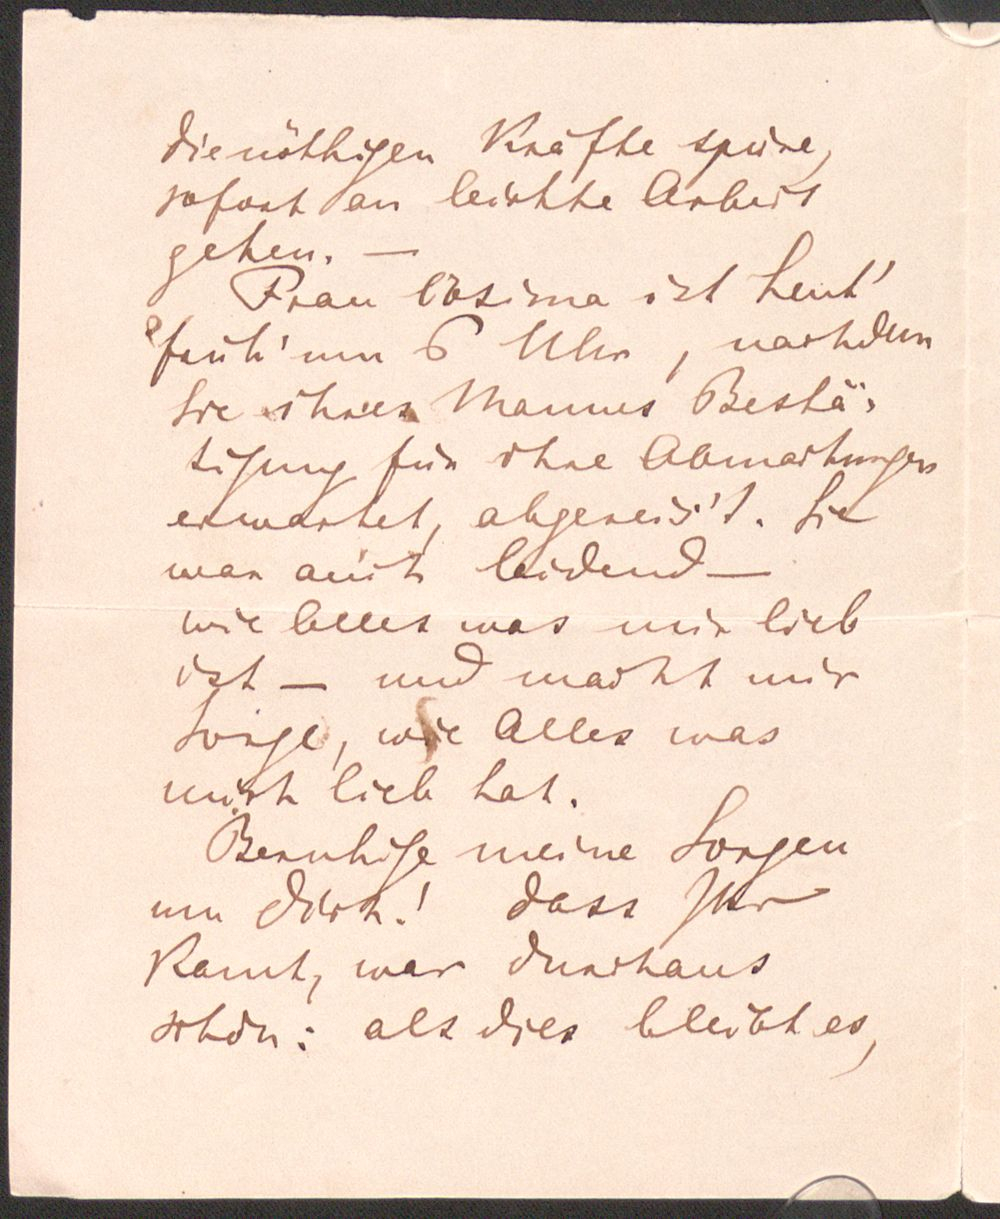 die nöthigen Kräfte spüre,
sofort an leichte Arbeit
gehen. —
Frau Cosima ist heut'
früh' um 6 Uhr, nachdem
sie ihres Mannes Bestä-
tigung für ihre Abmachungen
erwartet, abgereis't. Sie
war auch leidend —
wie Alles was mir lieb
ist — und macht mir
Sorge, wie Alles was
mich lieb hat.
Beruhige meine Sorgen
um Dich! Dass Ihr
kamt, war durchaus
schön: als dies bleibt es,